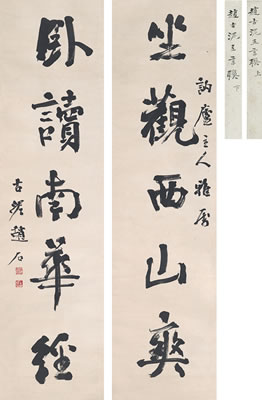 坐觀西山爽
訥廬主人雅屬
卧讀南華經
古泥趙石
趙古泥五言聯 上
趙古泥五言聯 下